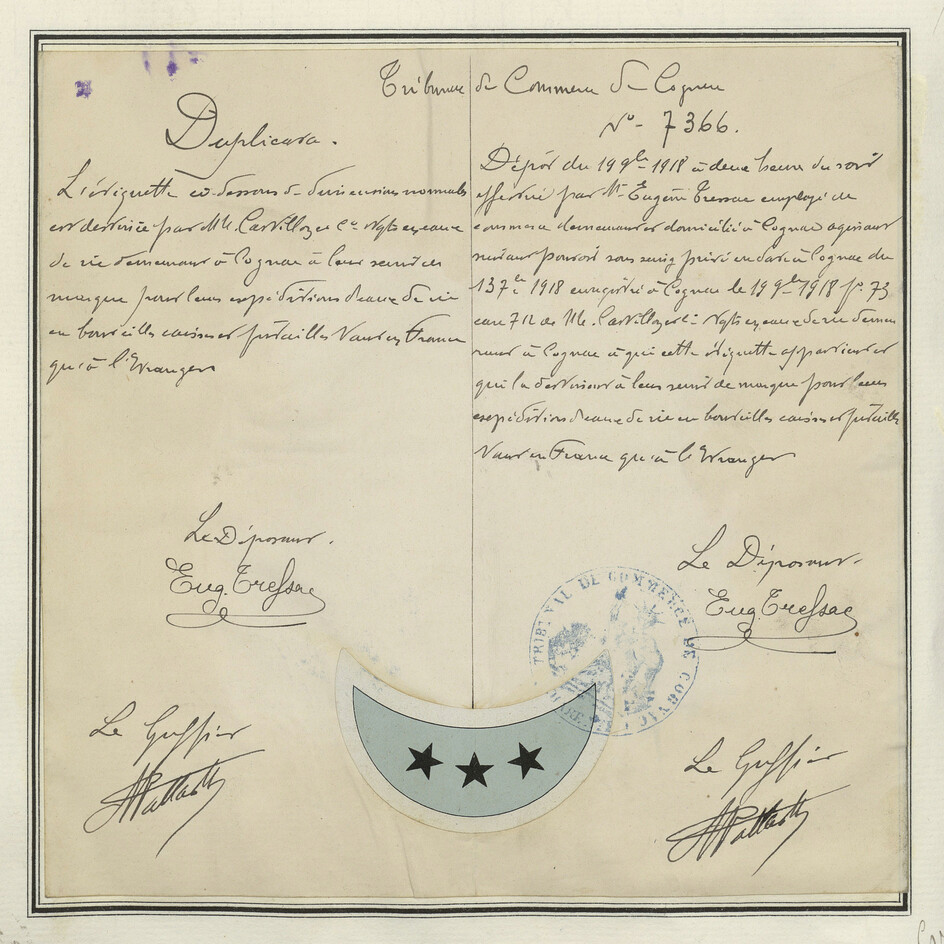 Tribunal de Commerce de Cognac
N° - 7366.
Duplicata.
L'étiquette ci-dessous de dimensions normales
est destinée par MM. Castillon et Cie Ngts en eaux
de vie demeurant à Cognac à leur servir de
marque pour leurs expéditions d'eaux de vie
en bouteilles caisses et futailles tant en France
qu'à l'Etranger
Dépôt du 19 9bre 1918 à deux heures du soir
effectué par Mr Eugène Tressac employé de
commerce demeurant et domicilié à Cognac agissant
suivant pouvoir sous seing privé en date à Cognac du
1918 enregistré à Cognac le 19 9bre 1918 f° 73
case 711 de MM. Castillon et Cie Ngts en eaux de vie demeu
rant à Cognac à qui cette étiquette appartient et
qui la destinent à leur servir de marque pour leurs
expéditions d'eaux de vie en bouteilles caisses et futailles
tant en France qu'à l'Etranger
Le Déposant.
Eug. Tressac
Le Déposant.
Eug. Tressac
TRIBUNAL DE COMMERCE DE COGNAC
Le Greffier
Le Greffier